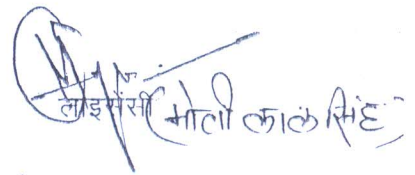 लाइसेंसी (मोती लाल सिंह)